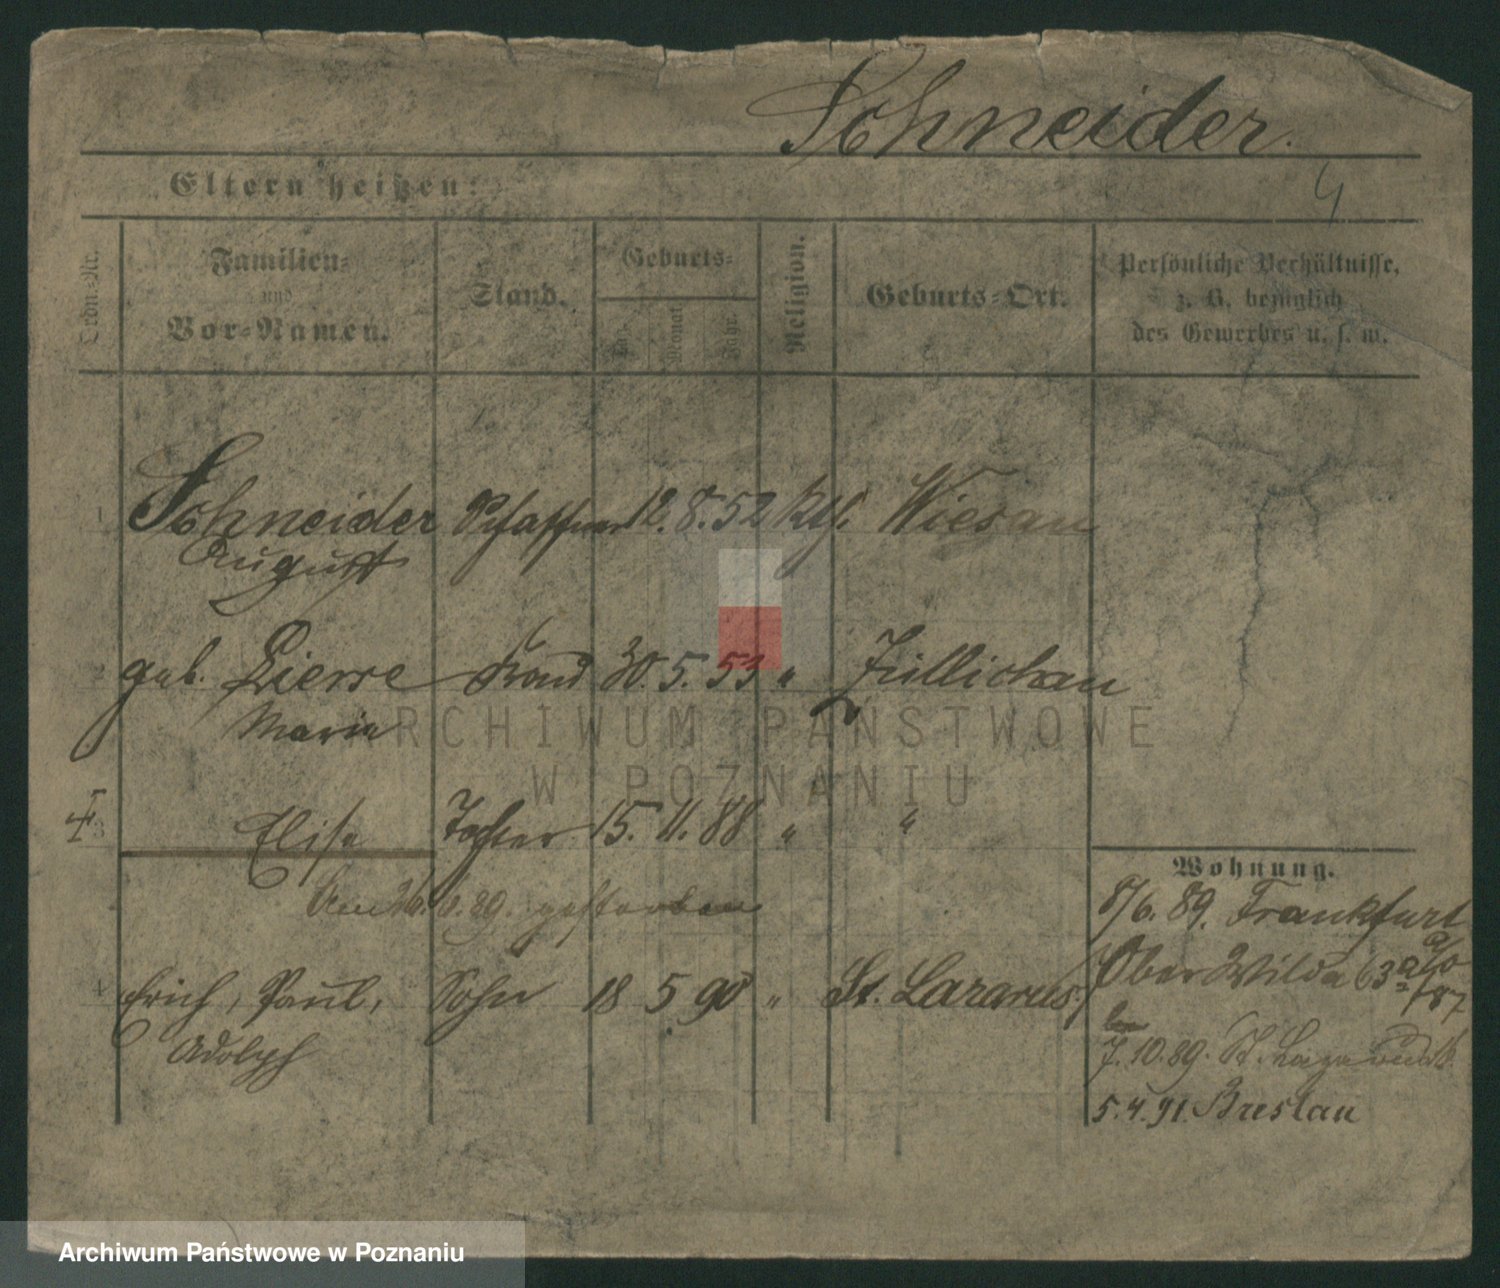 Schneider.
Eltern heißen:
4
Ordn.-Nr.
Familien-
und
Vor-Namen.
Stand.
Geburts-
Tag.
Monat
Jahr.
Religion.
Geburts-Ort.
Persönliche Verhältnisse,
z. B. bezüglich
des Gewerbes u. s. w.
1 Schneider Schaffner 12. 8. 52 kth. Wiesau
August
2 geb. Pierre Frau 30. 5. 53 " Züllichau
Marie
3 Elise Tochter 15. 11. 88 " "
Am 26. 6. 89. gestorben
4 Erich, Paul, Sohn 18 5 90 " St. Lazarus
Adolph
Wohnung.
8/6. 89. Frankfurt
a/O
Ober Wilda 63
7. 10. 89. St. Lazarus
5. 4. 91. Breslau
ARCHIWUM PAŃSTWOWE
W POZNANIU
Archiwum Państwowe w Poznaniu